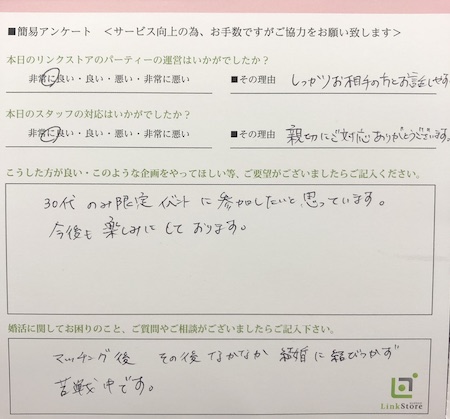 ■簡易アンケート ＜サービス向上の為、お手数ですがご協力をお願い致します＞
本日のリンクストアのパーティーの運営はいかがでしたか？
非常に良い・良い・悪い・非常に悪い ■その理由 しっかりお相手の方とお話しせず
本日のスタッフの対応はいかがでしたか？
非常に良い・良い・悪い・非常に悪い ■その理由 親切にご対応ありがとうございます。
こうした方が良い・このような企画をやってほしい等、ご要望がございましたらご記入ください。
30代のみ限定イベントに参加したいと思っています。
今後も楽しみにしております。
婚活に関してお困りのこと、ご質問やご相談がございましたらご記入下さい。
マッチング後 その後なかなか結婚に結びつかず
苦戦中です。
LinkStore